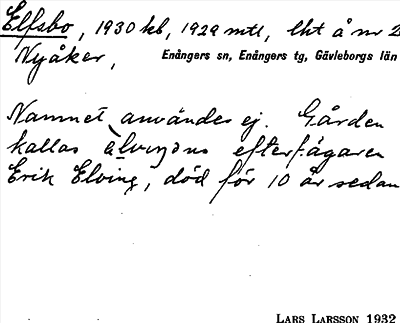 Elfsbo, 1930 kb, 1929 mtl, lht å nr 2
Nyåker,
Enångers sn, Enångers tg, Gävleborgs län
Namnet användes ej. Gården
kallas efter f. ägaren
Erik Elving, död för 10 år sedan
LARS LARSSON 1932